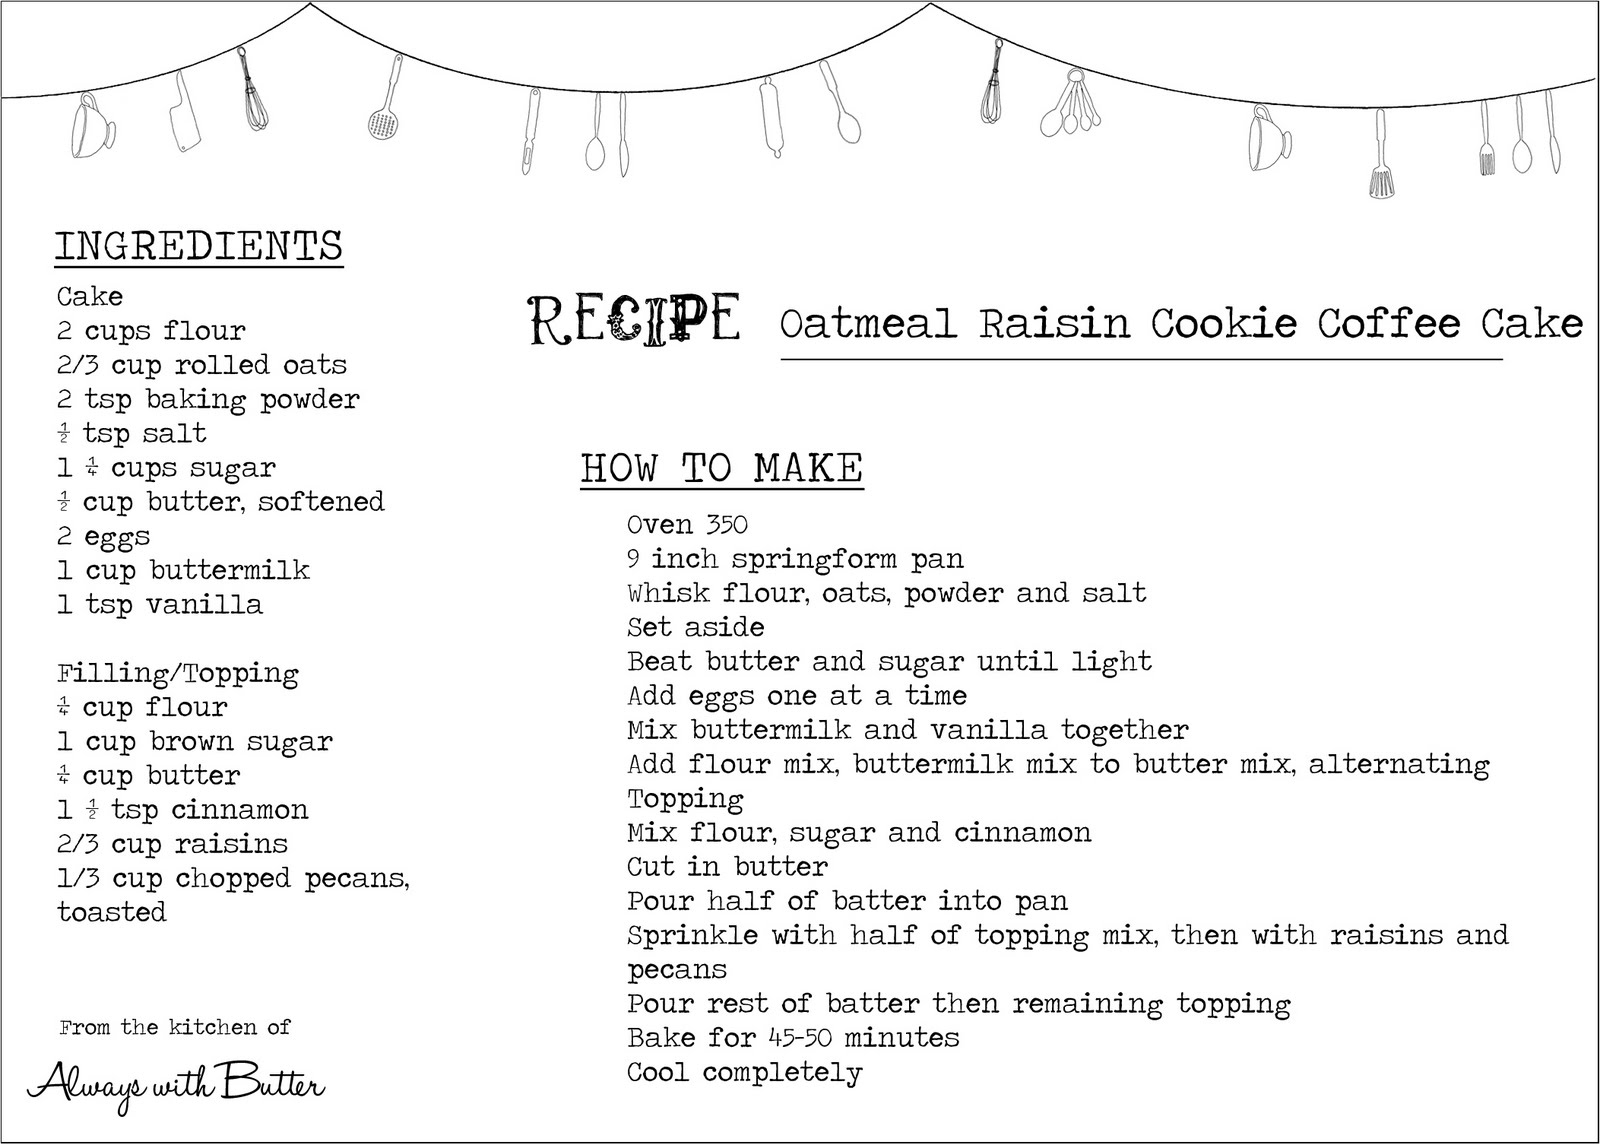 INGREDIENTS
Cake
2 cups flour
2/3 cup rolled oats
2 tsp baking powder
½ tsp salt
1 ¼ cups sugar
½ cup butter, softened
2 eggs
1 cup buttermilk
1 tsp vanilla
Filling/Topping
¼ cup flour
1 cup brown sugar
¼ cup butter
1 ½ tsp cinnamon
2/3 cup raisins
1/3 cup chopped pecans,
toasted
From the kitchen of
Always with Butter
RECIPE Oatmeal Raisin Cookie Coffee Cake
HOW TO MAKE
Oven 350
9 inch springform pan
Whisk flour, oats, powder and salt
Set aside
Beat butter and sugar until light
Add eggs one at a time
Mix buttermilk and vanilla together
Add flour mix, buttermilk mix to butter mix, alternating
Topping
Mix flour, sugar and cinnamon
Cut in butter
Pour half of batter into pan
Sprinkle with half of topping mix, then with raisins and
pecans
Pour rest of batter then remaining topping
Bake for 45-50 minutes
Cool completely